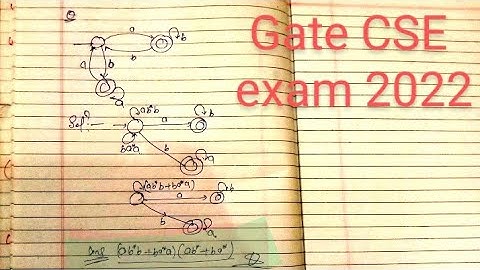 Gate CSE
exam 2022
Q
a
b
b
a
b
a
Sol:—
ab*b
a
b
ba*a
b
a
(ab*b+ba*a)
a
b
b
a
Ans (ab*b+ba*a)(ab*+ba*)